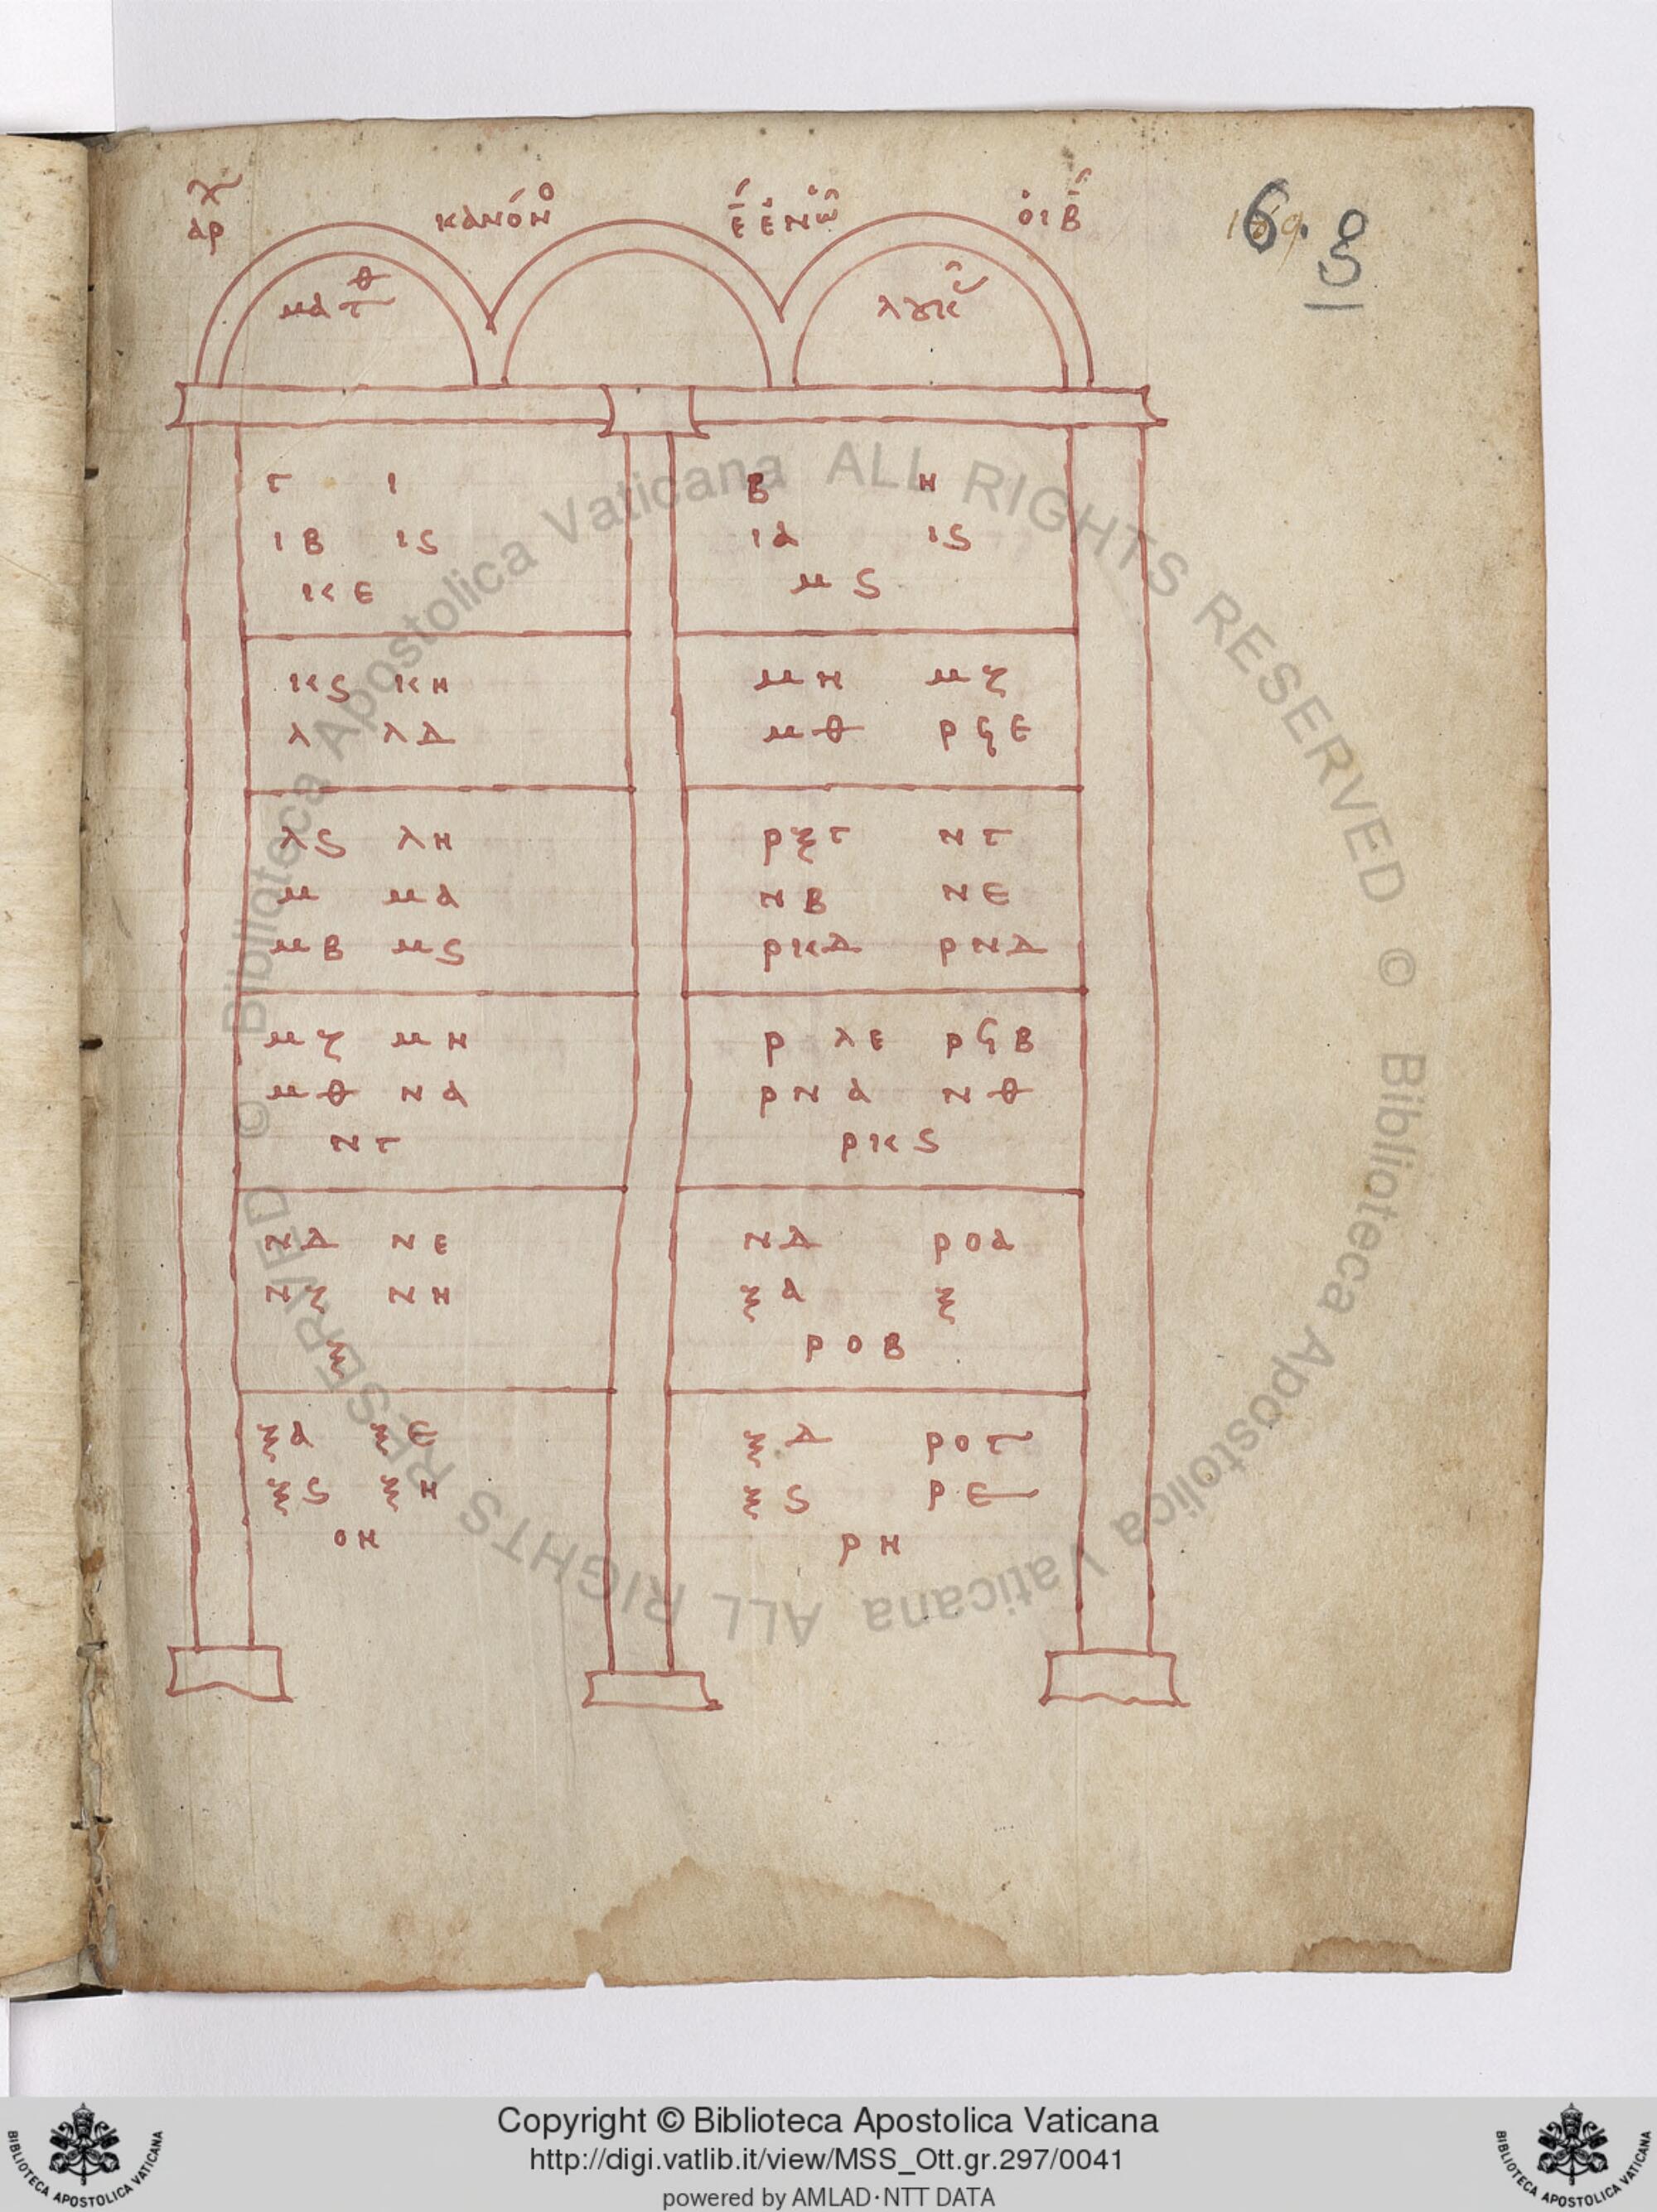 ἀρχ κανόνο ε ἐν ὧ οἱ β 6. 8
ματθ λουκ
Γ Ι Β Η
ΙΒ Ιϛ Ια Ιϛ
ΚΕ μϛ
Κϛ ΚΗ μΗ μζ
λ λΔ μθ ρϟΕ
λϛ λΗ ρξΓ ΝΓ
μ μα ΝΒ ΝΕ
μΒ μϛ ρΚΔ ρΝΔ
μζ μΗ ρ λΕ ρϟΒ
μθ Να ρΝα Νθ
ΝΓ ρΚϛ
ΝΔ ΝΕ ΝΔ ροα
Νζ ΝΗ ξα ξ
ξ ροΒ
ξα ξΕ ξΔ ροΓ
ξϛ ξΗ ξϛ ρΕ
οΗ ρΗ
© Biblioteca Apostolica Vaticana ALL RIGHTS RESERVED © Biblioteca Apostolica Vaticana ALL RIGHTS RESERVED
Copyright © Biblioteca Apostolica Vaticana
http://digi.vatlib.it/view/MSS_Ott.gr.297/0041
powered by AMLAD·NTT DATA
BIBLIOTECA APOSTOLICA VATICANA BIBLIOTECA APOSTOLICA VATICANA